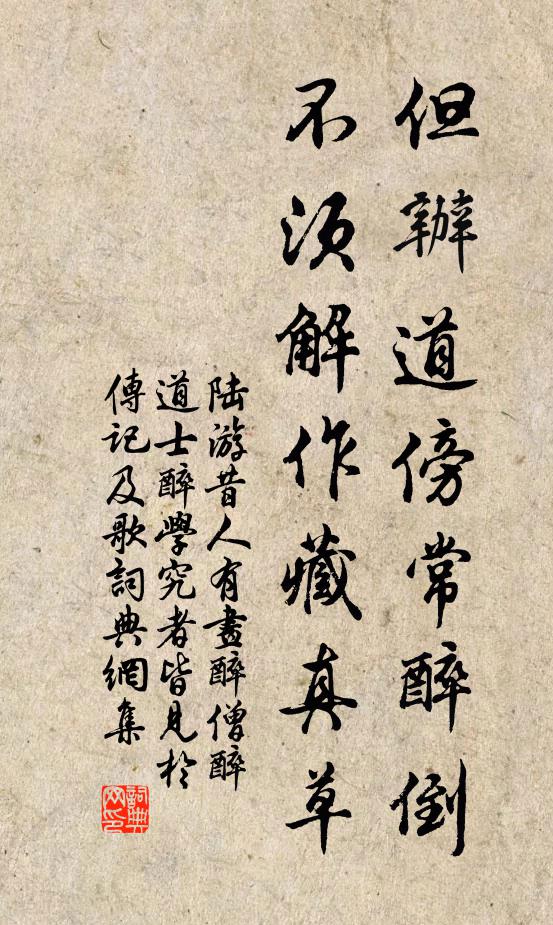 但辦道傍常醉倒
不須解作藏真草
陸游昔人有畫醉僧醉
道士醉學究者皆見於
傳記及歌詞典網集
詞典網印